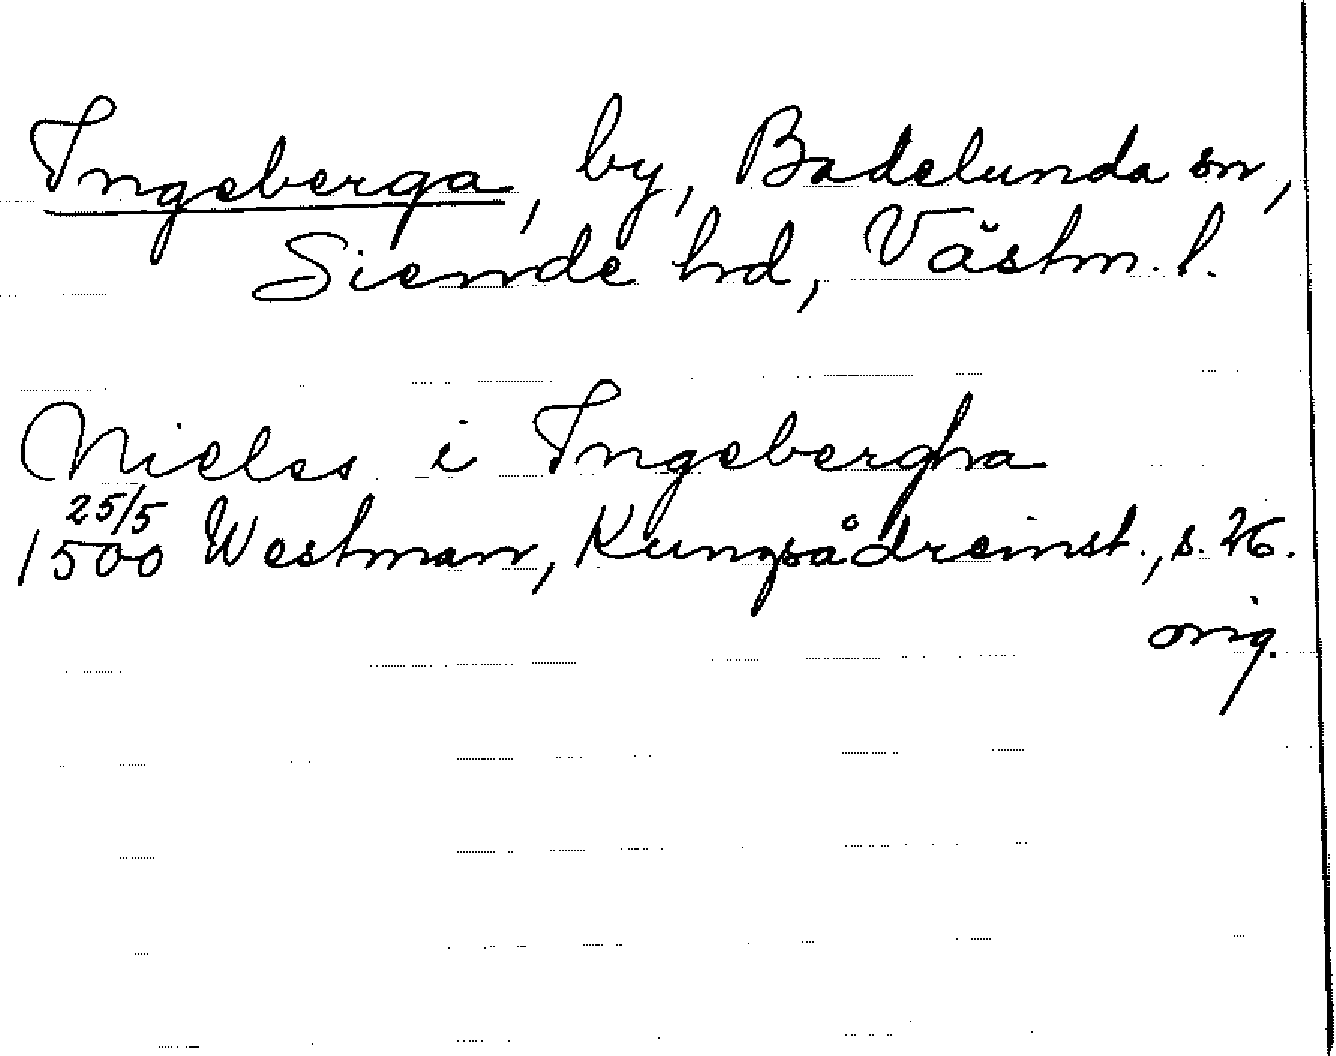 Ingeberga, by, Badelunda sn,
Siende hd, Västm. l.
Nielss i Ingebergha
25/5
1500 Westman, Kungsådreinst., s. 26.
orig.